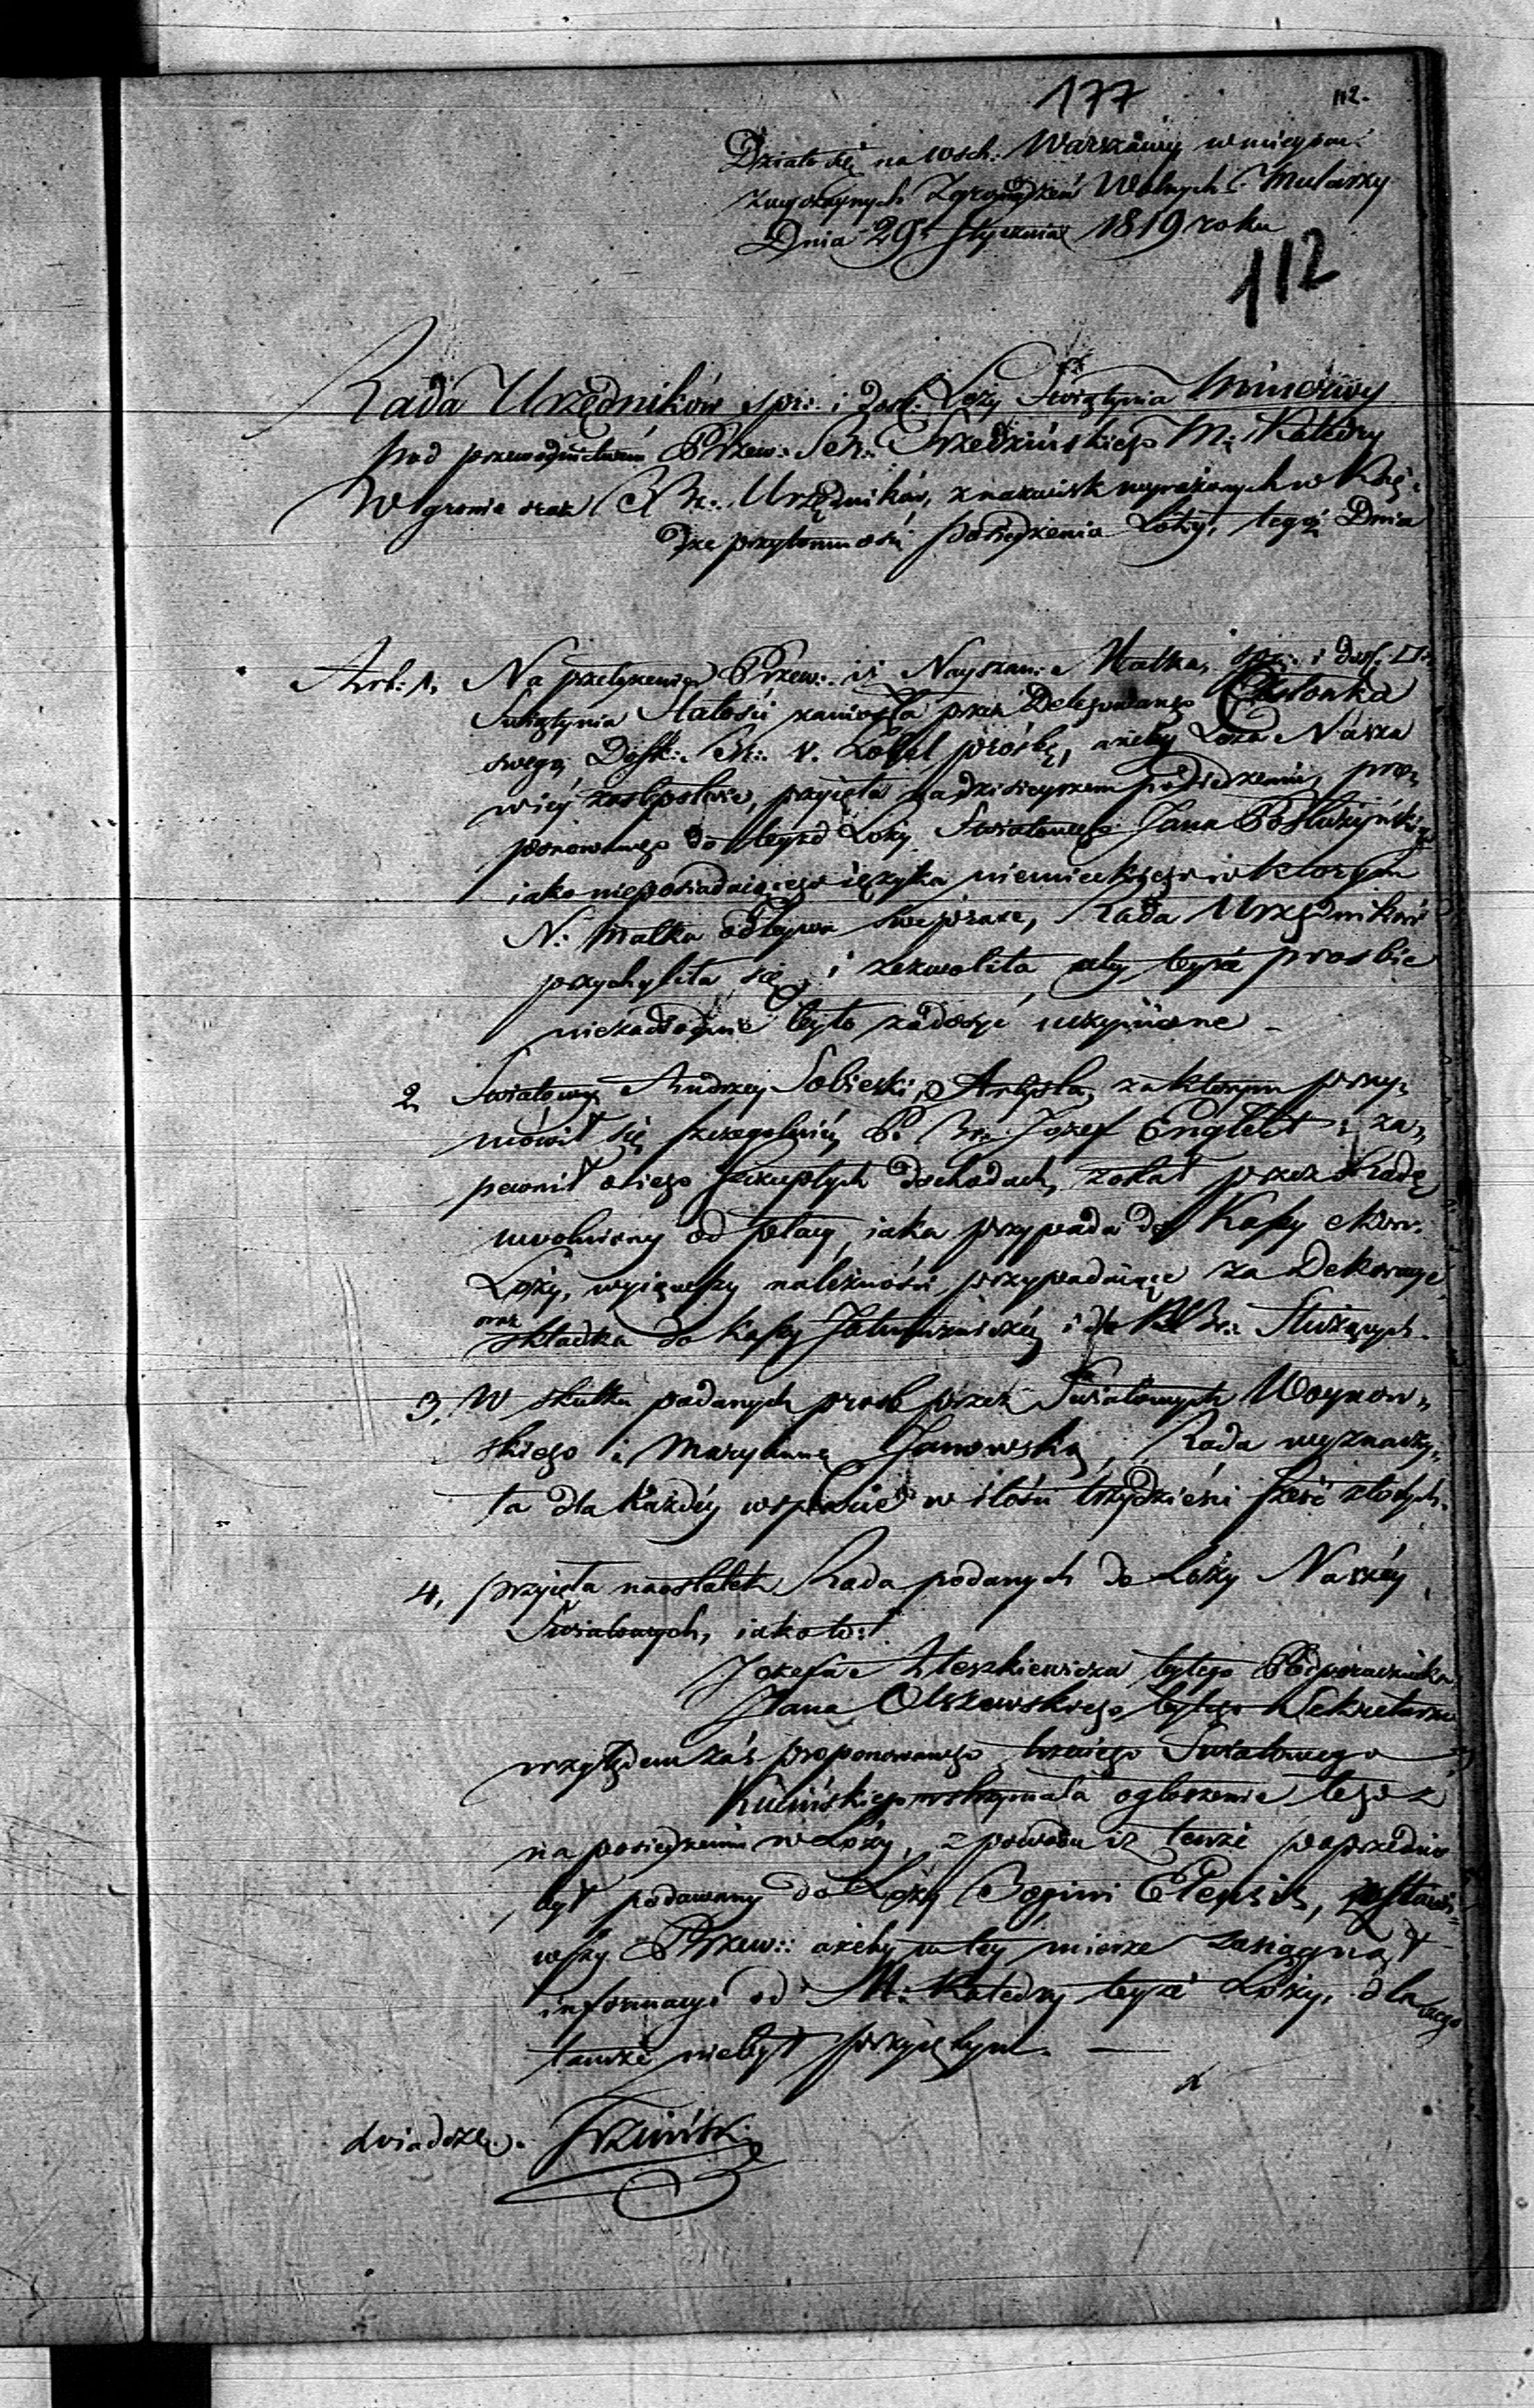 177 112.
Działo się na wsch: Warszawy w mieyscu
zwyczaynych Zgromadzeń Wolnych Mularzy
Dnia 29 Stycznia 1819 roku
112
Rada Urzędników spr: i dosk: Loży Swiątynia Minerwy
pod przewodnictwem Przew: M: Katedry
W gronie oraz Br: Urzędników, z nazwisk wyrażonych w Księ-
dze przytomności posiedzenia Loży, tegoż Dnia
Art: 1. Na przełożenie Przew: iż Nayszan: Matka, spr: i dosk:
Swiątynia Stałości zaniosła przez Delegowanego Członka
swego, Dosk: Br: prośbę, ażeby Loża Nasza
w iéy zastępstwie, przyięła na dzisieyszem posiedzeniu, pro-
ponowanego do teyże Loży Swiatowego Jana
iako nieposiadaiącego ięzyka niemieckiego w którym
N: Matka odbywa swe prace, Rada Urzędników
przychyliła się, i zezwoliła, aby teyże prosbie
było zadosyć uczynione –
2. Swiatowy Andrzey Sobieski, Artysta, za ktorym przy-
mówił się szczegolniéy P. Br: Jozef Englert i za-
pewnił o iego szczupłych dochodach, został przez Radę
uwolniony od płacy, iaka przypada do Kassy
Loży, wyiąwszy należności, przypadaiące za Dekoracye,
oraz
składka do Kassy Jałmużniczéy i dla Br: Służących.
3. W skutku podanych prosb przez Swiatowych Woynow-
skiego i Maryannę Janowską, Rada wyznaczy-
ła dla każdéy wsparcie w ilości trzydzieści sześć złotych.
4. Przyięła naostatek Rada podanych do Loży Naszéy
Swiatowych, iako to:
Jozefa byłego Podporucznika
Jana Olszewskiego byłego Sekretarza
względem zaś proponowanego trzeciego Swiatowego
wstrzymała ogłoszenie tegoż
na posiedzeniu w Loży, z powodu iż tenże poprzednio
był podawany do Loży Bogini Eleusis,
wszy Przew: ażeby w téy mierze zasięgnął
informacyi od M: Katedry teyże Loży, dla czego
tamże niebył przyiętym. —